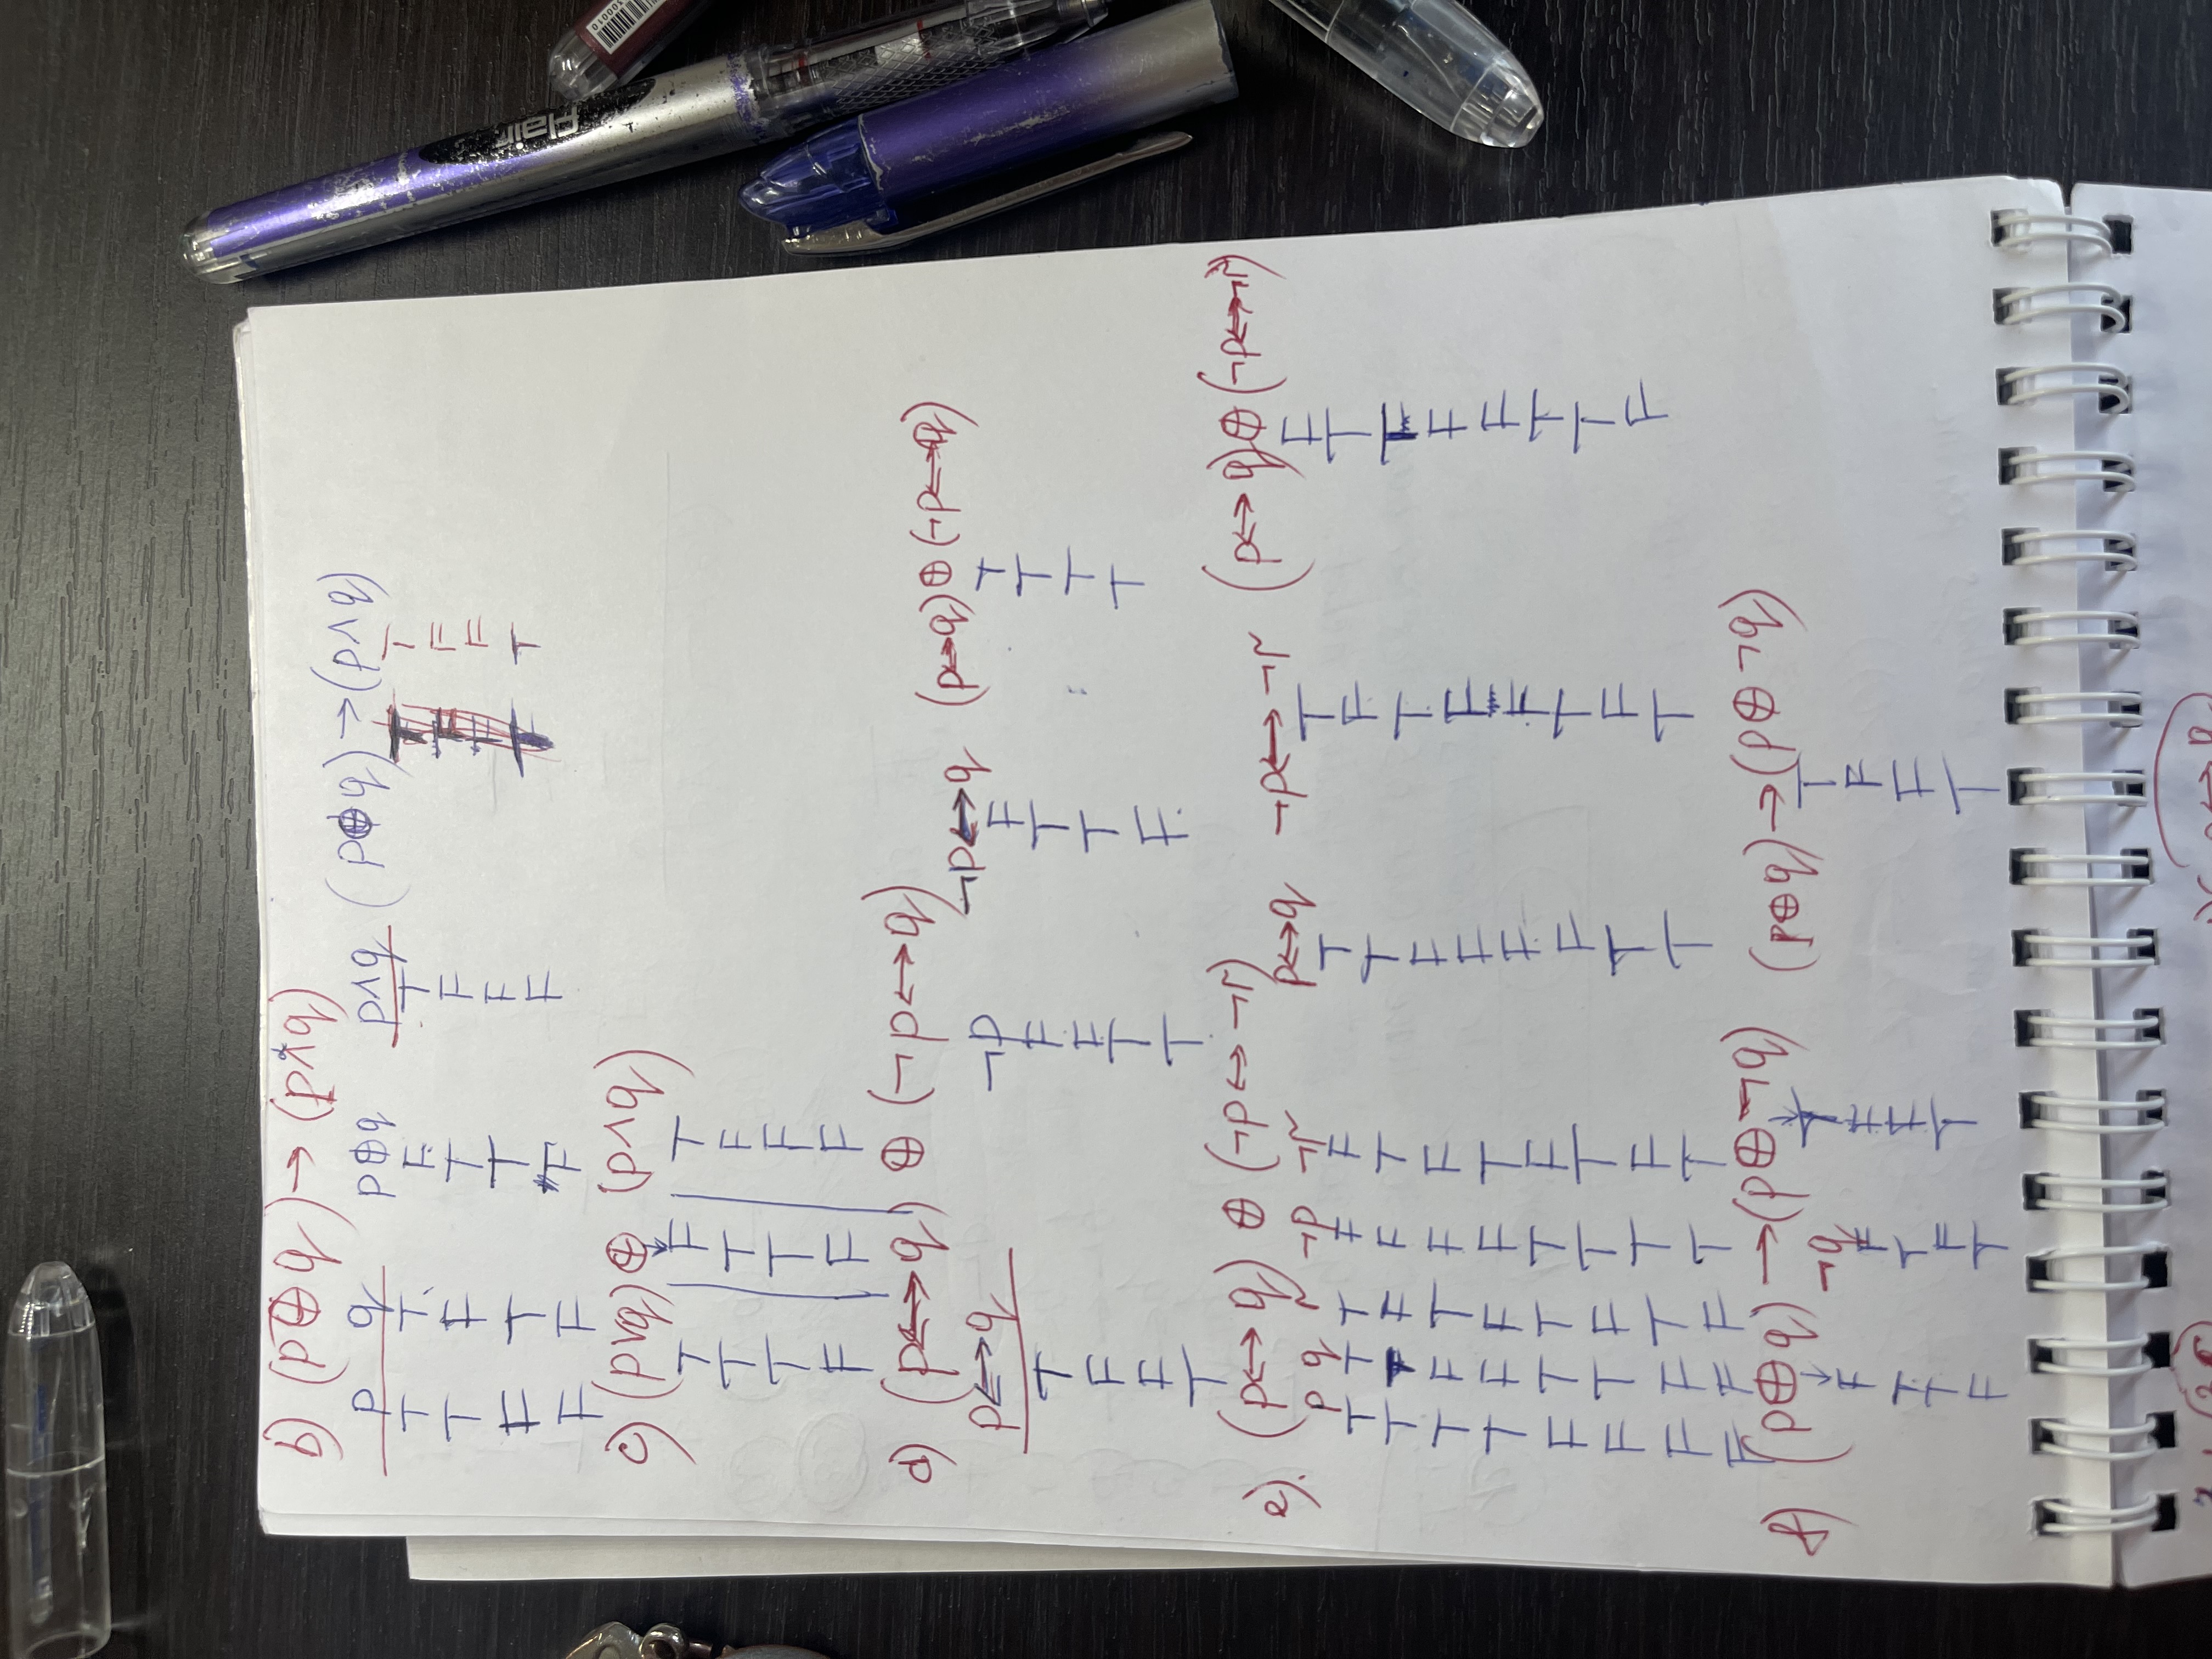 b) (p⊕q) → (p∧q)
p q p⊕q p∧q (p⊕q) → (p∧q)
T T F T T
T F T F F
F T T F F
F F F F T
c) (p∨q) ⊕ (p∧q)
T F T
T T F
T T F
F F F
d) (p↔q) ⊕ (¬p↔q)
p↔q ¬p ¬p↔q (p↔q)⊕(¬p↔q)
T F F T
F F T T
F T T T
T T F T
e). (p↔q) ⊕ (¬p↔¬r)
p q r ¬p ¬r p↔q ¬p↔¬r (p↔q)⊕(¬p↔¬r)
T T T F F T T F
T T F F T T F T
T F T F F F T T
T F F F T F F F
F T T T F F F F
F T F T T F T T
F F T T F T F T
F F F T T T T F
f) (p⊕q) → (p⊕¬q) (p⊕q) → (p⊕¬q)
¬q
F F T T
T T F F
T F F F
F T T T
Flair